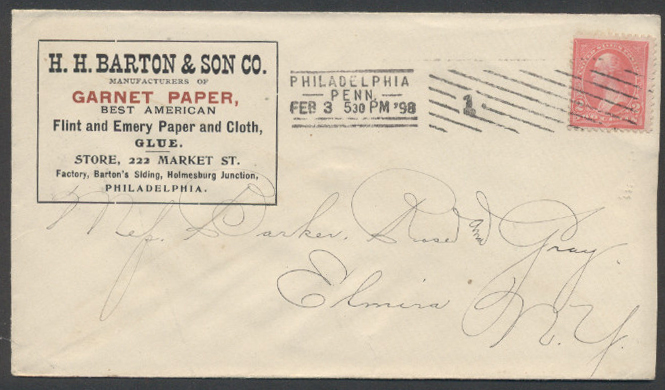 H. H. BARTON & SON CO.
MANUFACTURERS OF
GARNET PAPER,
BEST AMERICAN
Flint and Emery Paper and Cloth,
GLUE.
STORE, 222 MARKET ST.
Factory, Barton's Siding, Holmesburg Junction,
PHILADELPHIA.
PHILADELPHIA
PENN.
FEB 3 530 PM '98
1
Parker,
Gray.
Elmira
N.Y.